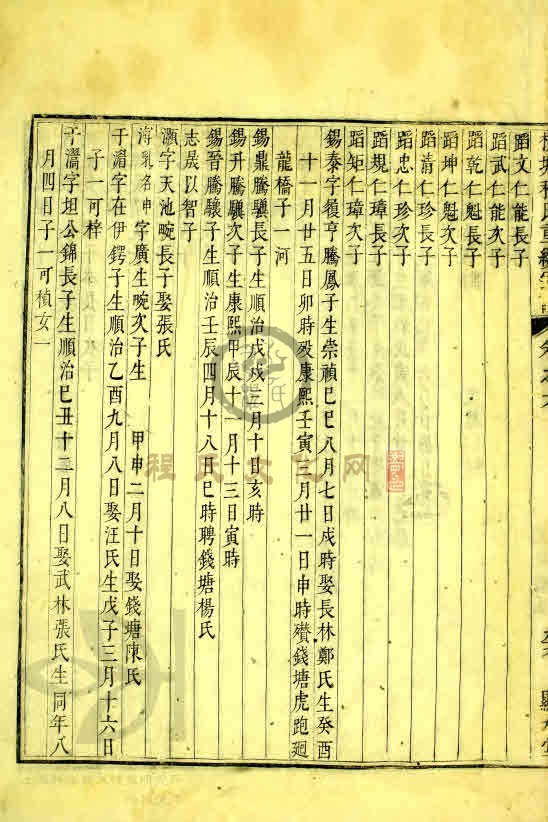 蹈文仁能長子
蹈武仁能次子
蹈乾仁魁長子
蹈坤仁魁次子
蹈清仁珍長子
蹈忠仁珍次子
蹈規仁璋長子
蹈矩仁璋次子
錫泰字復亨騰鳳子生崇禎己巳八月七日戌時娶長林鄭氏生癸酉
十一月廿五日卯時殁康熙壬寅三月廿一日申時殯錢塘虎跑廻
龍橋子一河
錫鼎騰驥長子生順治戊戌三月十日亥時
錫升騰驥次子生康熙甲辰十一月十三日寅時
錫晉騰驤子生順治壬辰四月十八日巳時聘錢塘楊氏
志晟以智子
灝字天池晼長子娶張氏
淳乳名申字廣生晼次子生 甲申二月十日娶錢塘陳氏
于濳字在伊鍔子生順治乙酉九月八日娶汪氏生戊子三月十六日
子一可梓
于濳字坦公錦長子生順治己丑十二月八日娶武林張氏生同年八
月四日子一可楨女一
程氏文化网